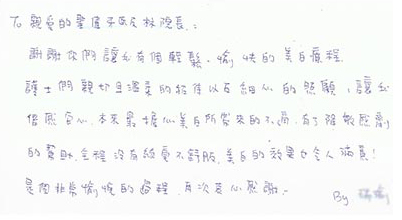 To 親愛的醫護人員及林院長:
謝謝你們讓我有個輕鬆、愉快的美白療程.
護士們親切且溫柔的給俾以及細心的照顧,讓我
倍感窩心.本來最擔心美白所帶來的不適,有了降敏感劑
的幫助,全程沒有絲毫不舒服,美白的效果也令人滿意!
是個非常愉悅的過程,再次衷心感謝~
By